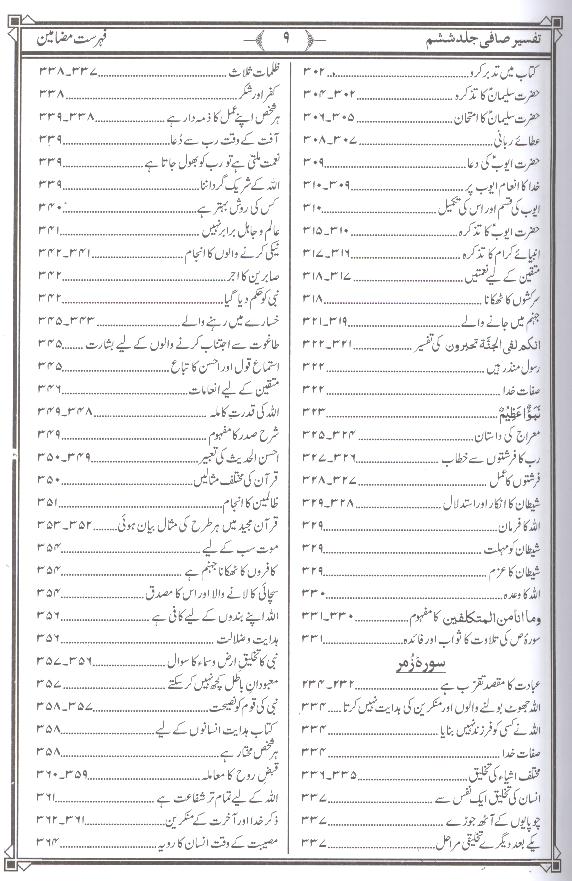 تفسیر صافی جلد ششم
۹
فہرست مضامین
کتاب میں تدبر کرو ۳۰۲
حضرت سلیمانؑ کا تذکرہ ۳۰۲۔۳۰۴
حضرت سلیمانؑ کا امتحان ۳۰۵۔۳۰۶
عطائے ربانی ۳۰۷۔۳۰۸
حضرت ایوبؑ کی دعا ۳۰۹
خدا کا انعام ایوب پر ۳۰۹۔۳۱۰
ایوب کی قسم اور اس کی تکمیل ۳۱۰
حضرت ایوبؑ کا تذکرہ ۳۱۰۔۳۱۵
انبیائے کرام کا تذکرہ ۳۱۶۔۳۱۷
متقین کے لیے نعمتیں ۳۱۷۔۳۱۸
سرکشوں کا ٹھکانا ۳۱۸
جہنم میں جانے والے ۳۱۹۔۳۲۱
انکم لفی الجنۃ تحبرون کی تفسیر ۳۲۱۔۳۲۲
رسول منذر ہیں ۳۲۲
صفات خدا ۳۲۲
نَبَؤٌا عَظِیْمٌ ۳۲۳
معراج کی داستان ۳۲۴۔۳۲۵
رب کا فرشتوں سے خطاب ۳۲۶۔۳۲۷
فرشتوں کا عمل ۳۲۷۔۳۲۸
شیطان کا انکار اور استدلال ۳۲۸۔۳۲۹
اللہ کا فرمان ۳۲۹
شیطان کو مہلت ۳۲۹
شیطان کا عزم ۳۲۹
اللہ کا وعدہ ۳۳۰
وما انا من المتکلفین کا مفہوم ۳۳۰۔۳۳۱
سورۂ ص کی تلاوت کا ثواب اور فائدہ ۳۳۱
سورۂ زُمر
عبادت کا مقصد تقرّب ہے ۲۳۲۔۲۳۴
اللہ جھوٹ بولنے والوں اور منکرین کی ہدایت نہیں کرتا ۳۳۴
اللہ نے کسی کو فرزند نہیں بنایا ۳۳۴
صفات خدا ۳۳۴
مختلف اشیاء کی تخلیق ۳۳۵۔۳۳۶
انسان کی تخلیق ایک نفس سے ۳۳۷
چوپایوں کے آٹھ جوڑے ۳۳۷
یکے بعد دیگرے تخلیقی مراحل ۳۳۷
ظلمات ثلاث ۳۳۷۔۳۳۸
کفر اور شکر ۳۳۸
ہر شخص اپنے عمل کا ذمہ دار ہے ۳۳۸۔۳۳۹
آفت کے وقت رب سے دُعا ۳۳۹
نعمت ملتی ہے تو رب کو بھول جاتا ہے ۳۳۹
اللہ کے شریک گرداننا ۳۳۹
کس کی روش بہتر ہے ۳۴۰
عالم و جاہل برابر نہیں ۳۴۱
نیکی کرنے والوں کا انجام ۳۴۱۔۳۴۲
صابرین کا اجر ۳۴۲
نبی کو حکم دیا گیا ۳۴۲
خسارے میں رہنے والے ۳۴۳۔۳۴۵
طاغوت سے اجتناب کرنے والوں کے لیے بشارت ۳۴۵
استماع قول اور احسن کا تباع ۳۴۵
متقین کے لیے انعامات ۳۴۶
اللہ کی قدرتِ کاملہ ۳۴۸۔۳۴۹
شرح صدر کا مفہوم ۳۴۹
احسن الحدیث کی تعبیر ۳۴۹۔۳۵۰
قرآن کی مختلف مثالیں ۳۵۰
ظالمین کا انجام ۳۵۱
قرآن مجید میں ہر طرح کی مثال بیان ہوئی ۳۵۲۔۳۵۳
موت سب کے لیے ۳۵۴
کافروں کا ٹھکانا جہنم ہے ۳۵۴
سچائی کا لانے والا اور اس کا مصدق ۳۵۴
اللہ اپنے بندوں کے لیے کافی ہے ۳۵۶
ہدایت و ضلالت ۳۵۶
نبی کا تخلیق ارض و سماء کا سوال ۳۵۶۔۳۵۷
معبودانِ باطل کچھ نہیں کر سکتے ۳۵۷
نبی کی قوم کو نصیحت ۳۵۷۔۳۵۸
کتاب ہدایت انسانوں کے لیے ۳۵۸
ہر شخص مختار ہے ۳۵۸
قبضِ روح کا معاملہ ۳۵۹۔۳۶۰
اللہ کے لیے تمام تر شفاعت ہے ۳۶۱
ذکر خدا اور آخرت کے منکرین ۳۶۱۔۳۶۲
مصیبت کے وقت انسان کا رویہ ۳۶۴